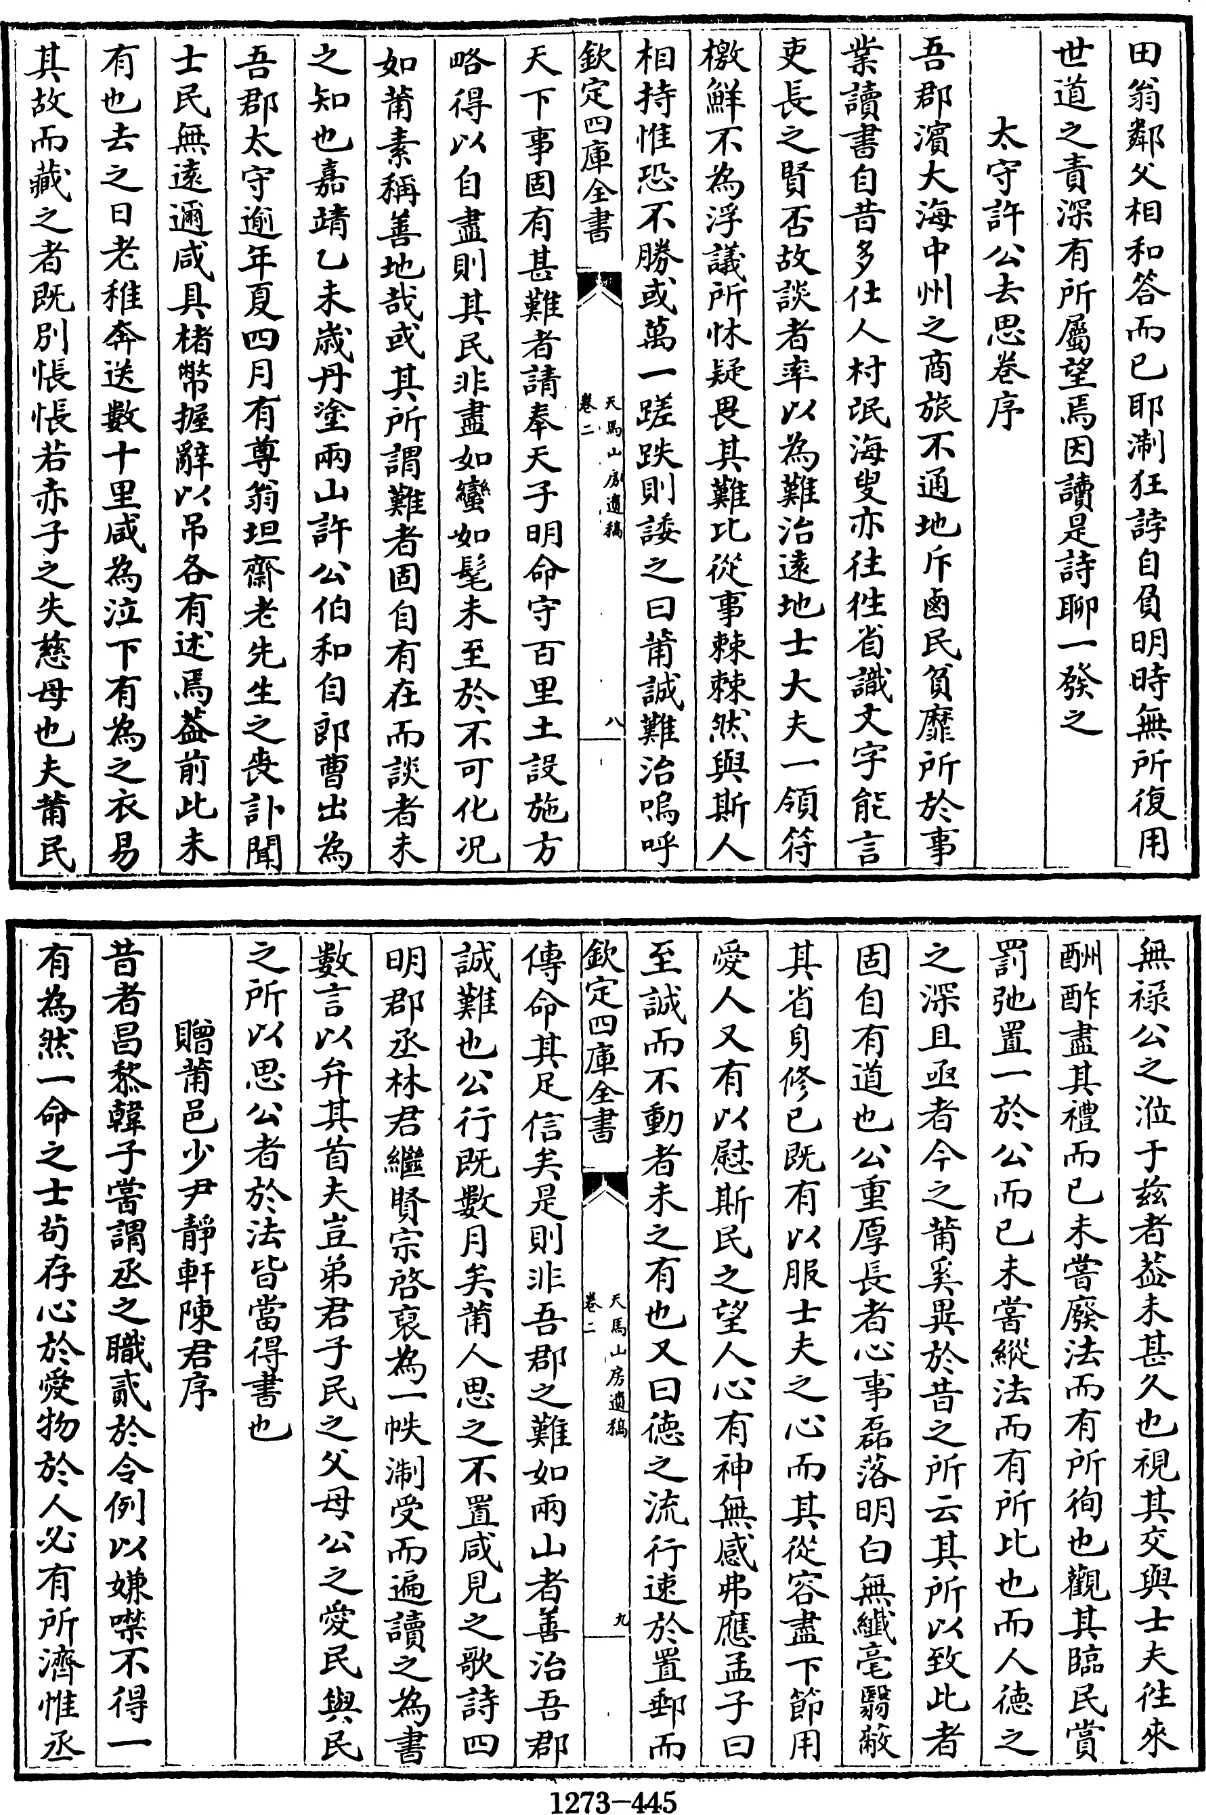 田翁鄰父相和答而已耶淛狂誖自負明時無所復用
世道之責深有所屬望焉因讀是詩聊一發之
太守許公去思卷序
吾郡濱大海中州之商旅不通地斥鹵民貧靡所於事
業讀書自昔多仕人村氓海叟亦往往省識文字能言
吏長之賢否故談者率以為難治遠地士大夫一領符
檄鮮不為浮議所怵疑畏其難比從事棘棘然與斯人
相持惟恐不勝或萬一蹉跌則諉之曰莆誠難治嗚呼
欽定四庫全書
天馬山房遺稿
卷二
八
天下事固有甚難者請奉天子明命守百里土設施方
略得以自盡則其民非盡如蠻如髦未至於不可化況
如莆素稱善地哉或其所謂難者固自有在而談者未
之知也嘉靖乙未歲丹塗兩山許公伯和自郎曹出為
吾郡太守逾年夏四月有尊翁坦齋老先生之喪訃聞
士民無遠邇咸具楮幣握辭以吊各有述焉葢前此未
有也去之日老稚奔送數十里咸為泣下有為之衣易
其故而藏之者既別悵悵若赤子之失慈母也夫莆民
無祿公之涖于茲者葢未甚久也視其交與士夫往來
酬酢盡其禮而已未嘗廢法而有所徇也觀其臨民賞
罰弛置一於公而已未嘗縱法而有所比也而人德之
之深且亟者今之莆奚異於昔之所云其所以致此者
固自有道也公重厚長者心事磊落明白無纎毫翳蔽
其省身修已既有以服士夫之心而其從容盡下節用
愛人又有以慰斯民之望人心有神無感弗應孟子曰
至誠而不動者未之有也又曰德之流行速於置郵而
欽定四庫全書
天馬山房遺稿
卷二
九
傳命其足信矣是則非吾郡之難如兩山者善治吾郡
誠難也公行既數月矣莆人思之不置咸見之歌詩四
明郡丞林君繼賢宗啓裒為一帙淛受而遍讀之為書
數言以弁其首夫豈弟君子民之父母公之愛民與民
之所以思公者於法皆當得書也
贈莆邑少尹靜軒陳君序
昔者昌黎韓子嘗謂丞之職貳於令例以嫌㗲不得一
有為然一命之士茍存心於愛物於人必有所濟惟丞
1273-445